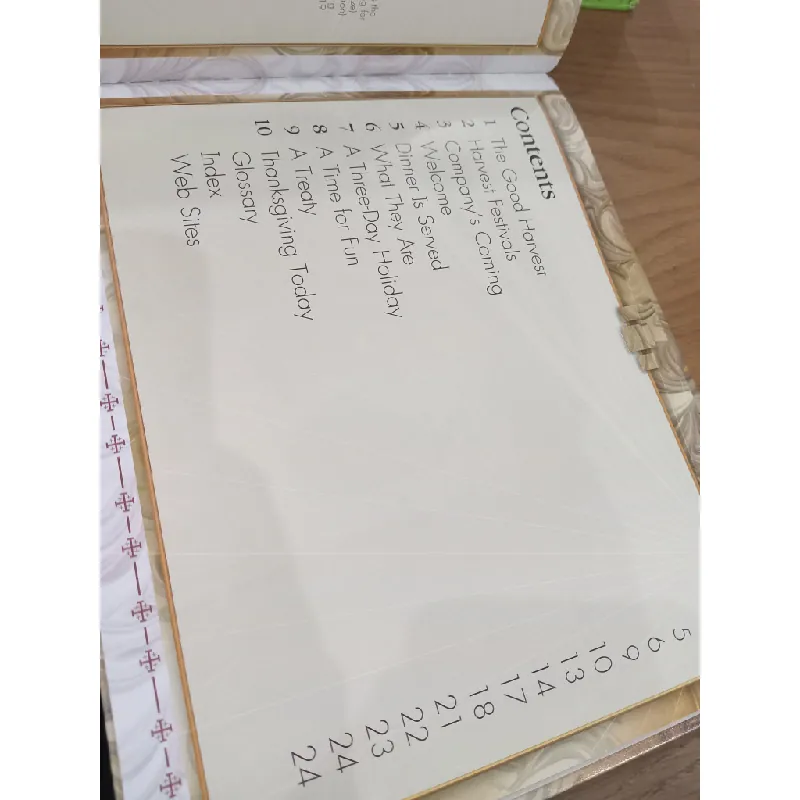 Contents
1 The Good Harvest 5
2 Harvest Festivals 6
3 Company's Coming 9
4 Welcome 10
5 Dinner Is Served 13
6 What They Ate 14
7 A Three-Day Holiday 17
8 A Time for Fun 18
9 A Treaty 21
10 Thanksgiving Today 22
Glossary 23
Index 24
Web Sites 24